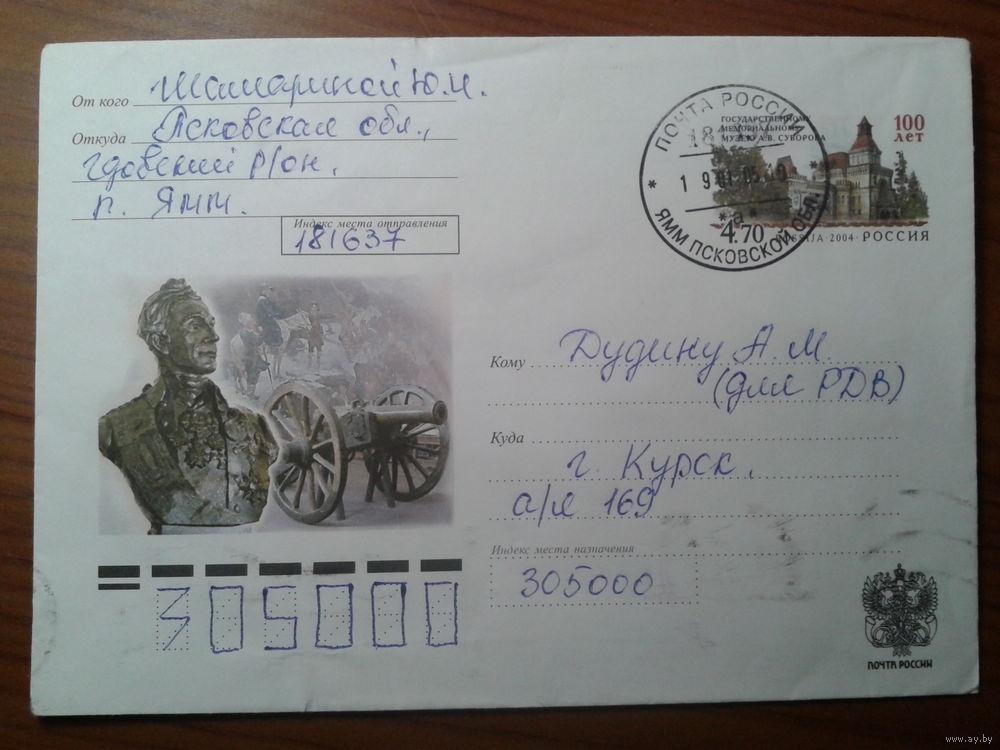 От кого Шамариной Ю.И.
Откуда Псковская обл.,
гдовский р/он.
п. Ямм.
Индекс места отправления
181637
ПОЧТА РОССИИ
ГОСУДАРСТВЕННОМУ
МЕМОРИАЛЬНОМУ
МУЗЕЮ А.В. СУВОРОВА
100
ЛЕТ
*а*
ЯММ ПСКОВСКОЙ ОБЛ.
4.70
2004 · РОССИЯ
Кому Дудину А.М.
(для РДВ)
Куда
г. Курск.
а/я 169
Индекс места назначения
305000
305000
ПОЧТА РОССИИ
www.ay.by